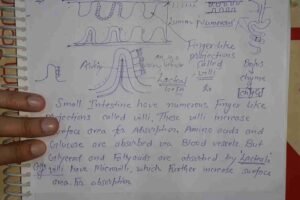 Lumen
Numerous
Finger like
projections
Called
villi
Lacteal
chyme
Small Intestine have numerous Finger like
Projections called villi, These villi increase
Surface area for Absorption, Amino acids and
Glucose are absorbed via Blood vessels. But
Glycerol and Fattyacids are absorbed by 'Lacteals'
villi have Microvilli, which Further increase surface
area For absorption